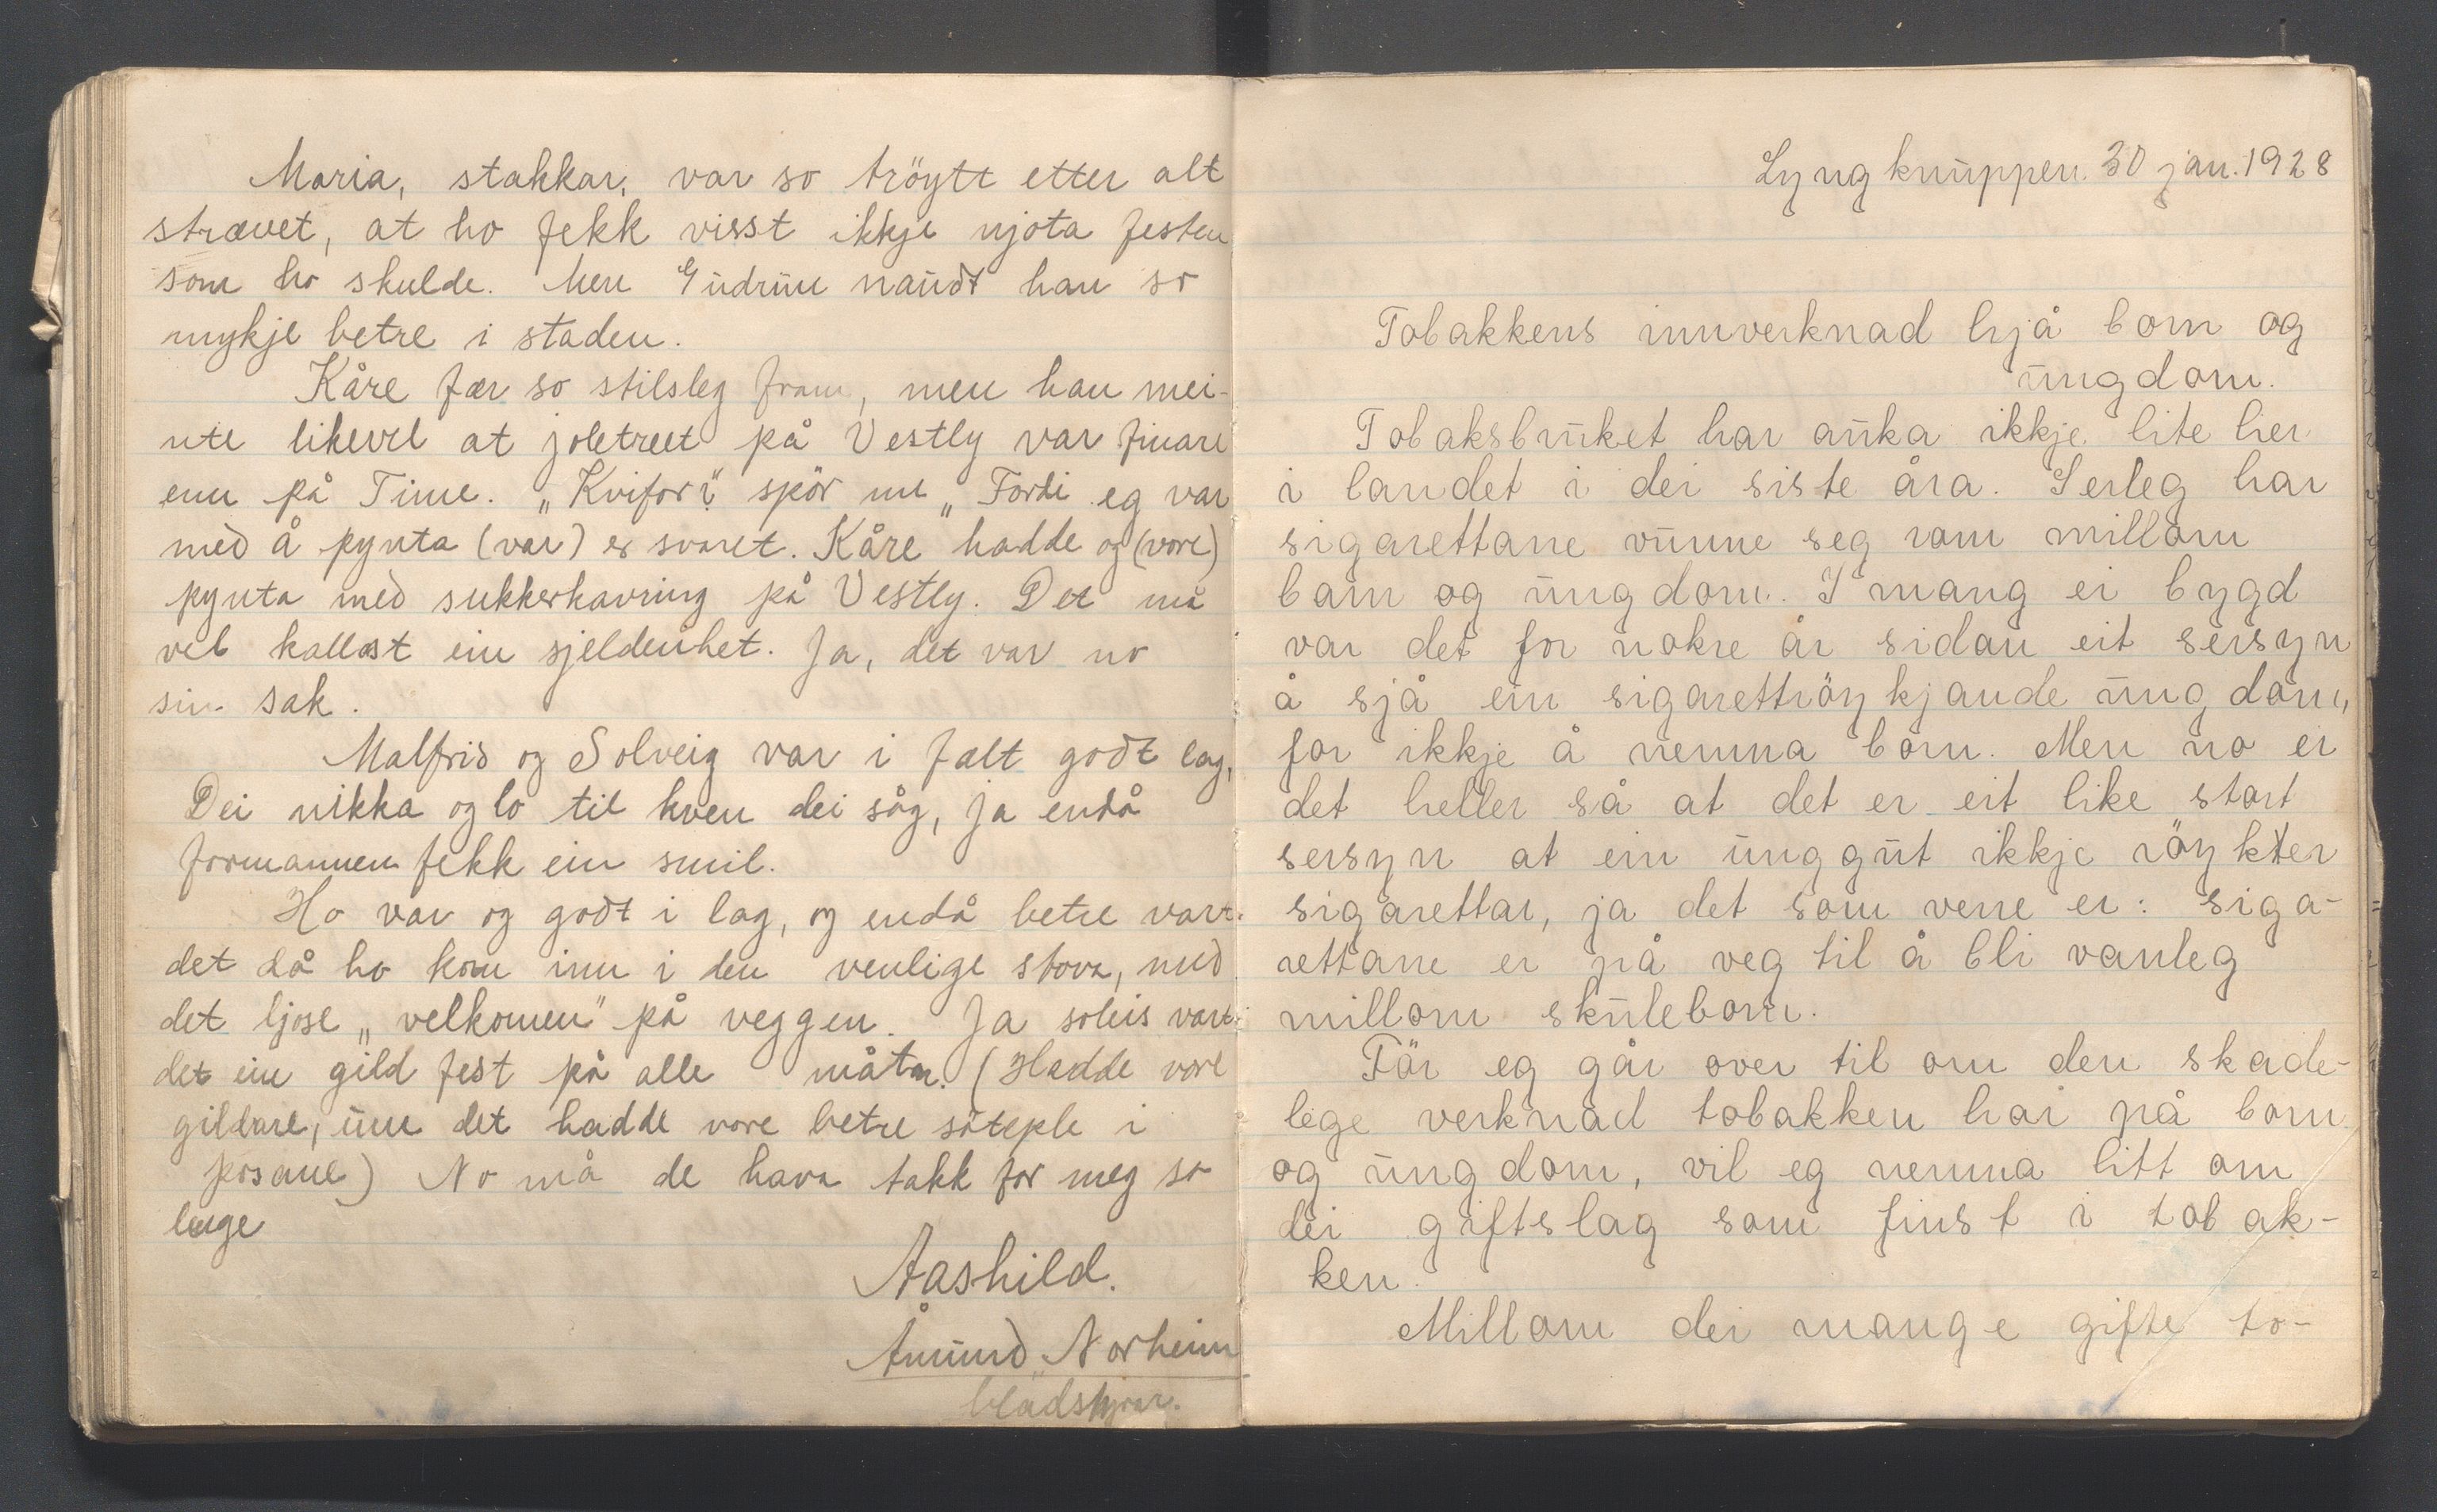 Maria, stakkar, var so tröytt etter alt
strævet, at ho fekk visst ikkje njota festen
som ho skulde. Men Gudrun naudt han so
mykje betre i staden.
Kåre fær so stilsleg fram, men han mei-
nte likevel at joletreet på Vestly var finare
enn på Time. „Kvifor?" spör me „Fordi eg var
med å pynta (var) er svaret. Kåre hadde og (vore)
pynta med sukkerhavring på Vestly. Det må
vel kallast ein sjeldenhet. Ja, det var no
sin sak.
Malfrid og Solveig var i fælt godt lag,
Dei nikka og lo til kven dei såg, ja endå
formannen fekk ein smil.
Ho var og godt i lag, og endå betre vart
det då ho kom inn i den venlige stova, med
det ljose „velkomen" på veggen. Ja soleis vart
det ein gild fest på alle måtar. (Hadde vore
gildare, um det hadde vore betre söteple i
posane) No må de hava takk for meg so
lenge
Aashild.
Åmund Norheim
bladskjrar.
Lyngknuppen. 30 jan. 1928
Tobakkens innverknad hjå born og
ungdom.
Tobaksbruket har auka ikkje lite her
i landet i dei siste åra. Serleg har
sigarettane vunne seg rom millom
barn og ungdom. I mang ei bygd
var det for nokre år sidan eit sersyn
å sjå ein sigarettröykjande ungdom,
for ikkje å nemna born. Men no er
det heller så at det er eit like stort
sersyn at ein unggut ikkje röykter
sigarettar, ja det som verre er: siga-
rettane er på veg til å bli vanleg
millom skuleborn.
För eg går over til om den skade-
lege verknad tobakken har på born
og ungdom, vil eg nemna litt om
dei giftslag som finst i tobak-
ken.
Millom dei mange gifte to-